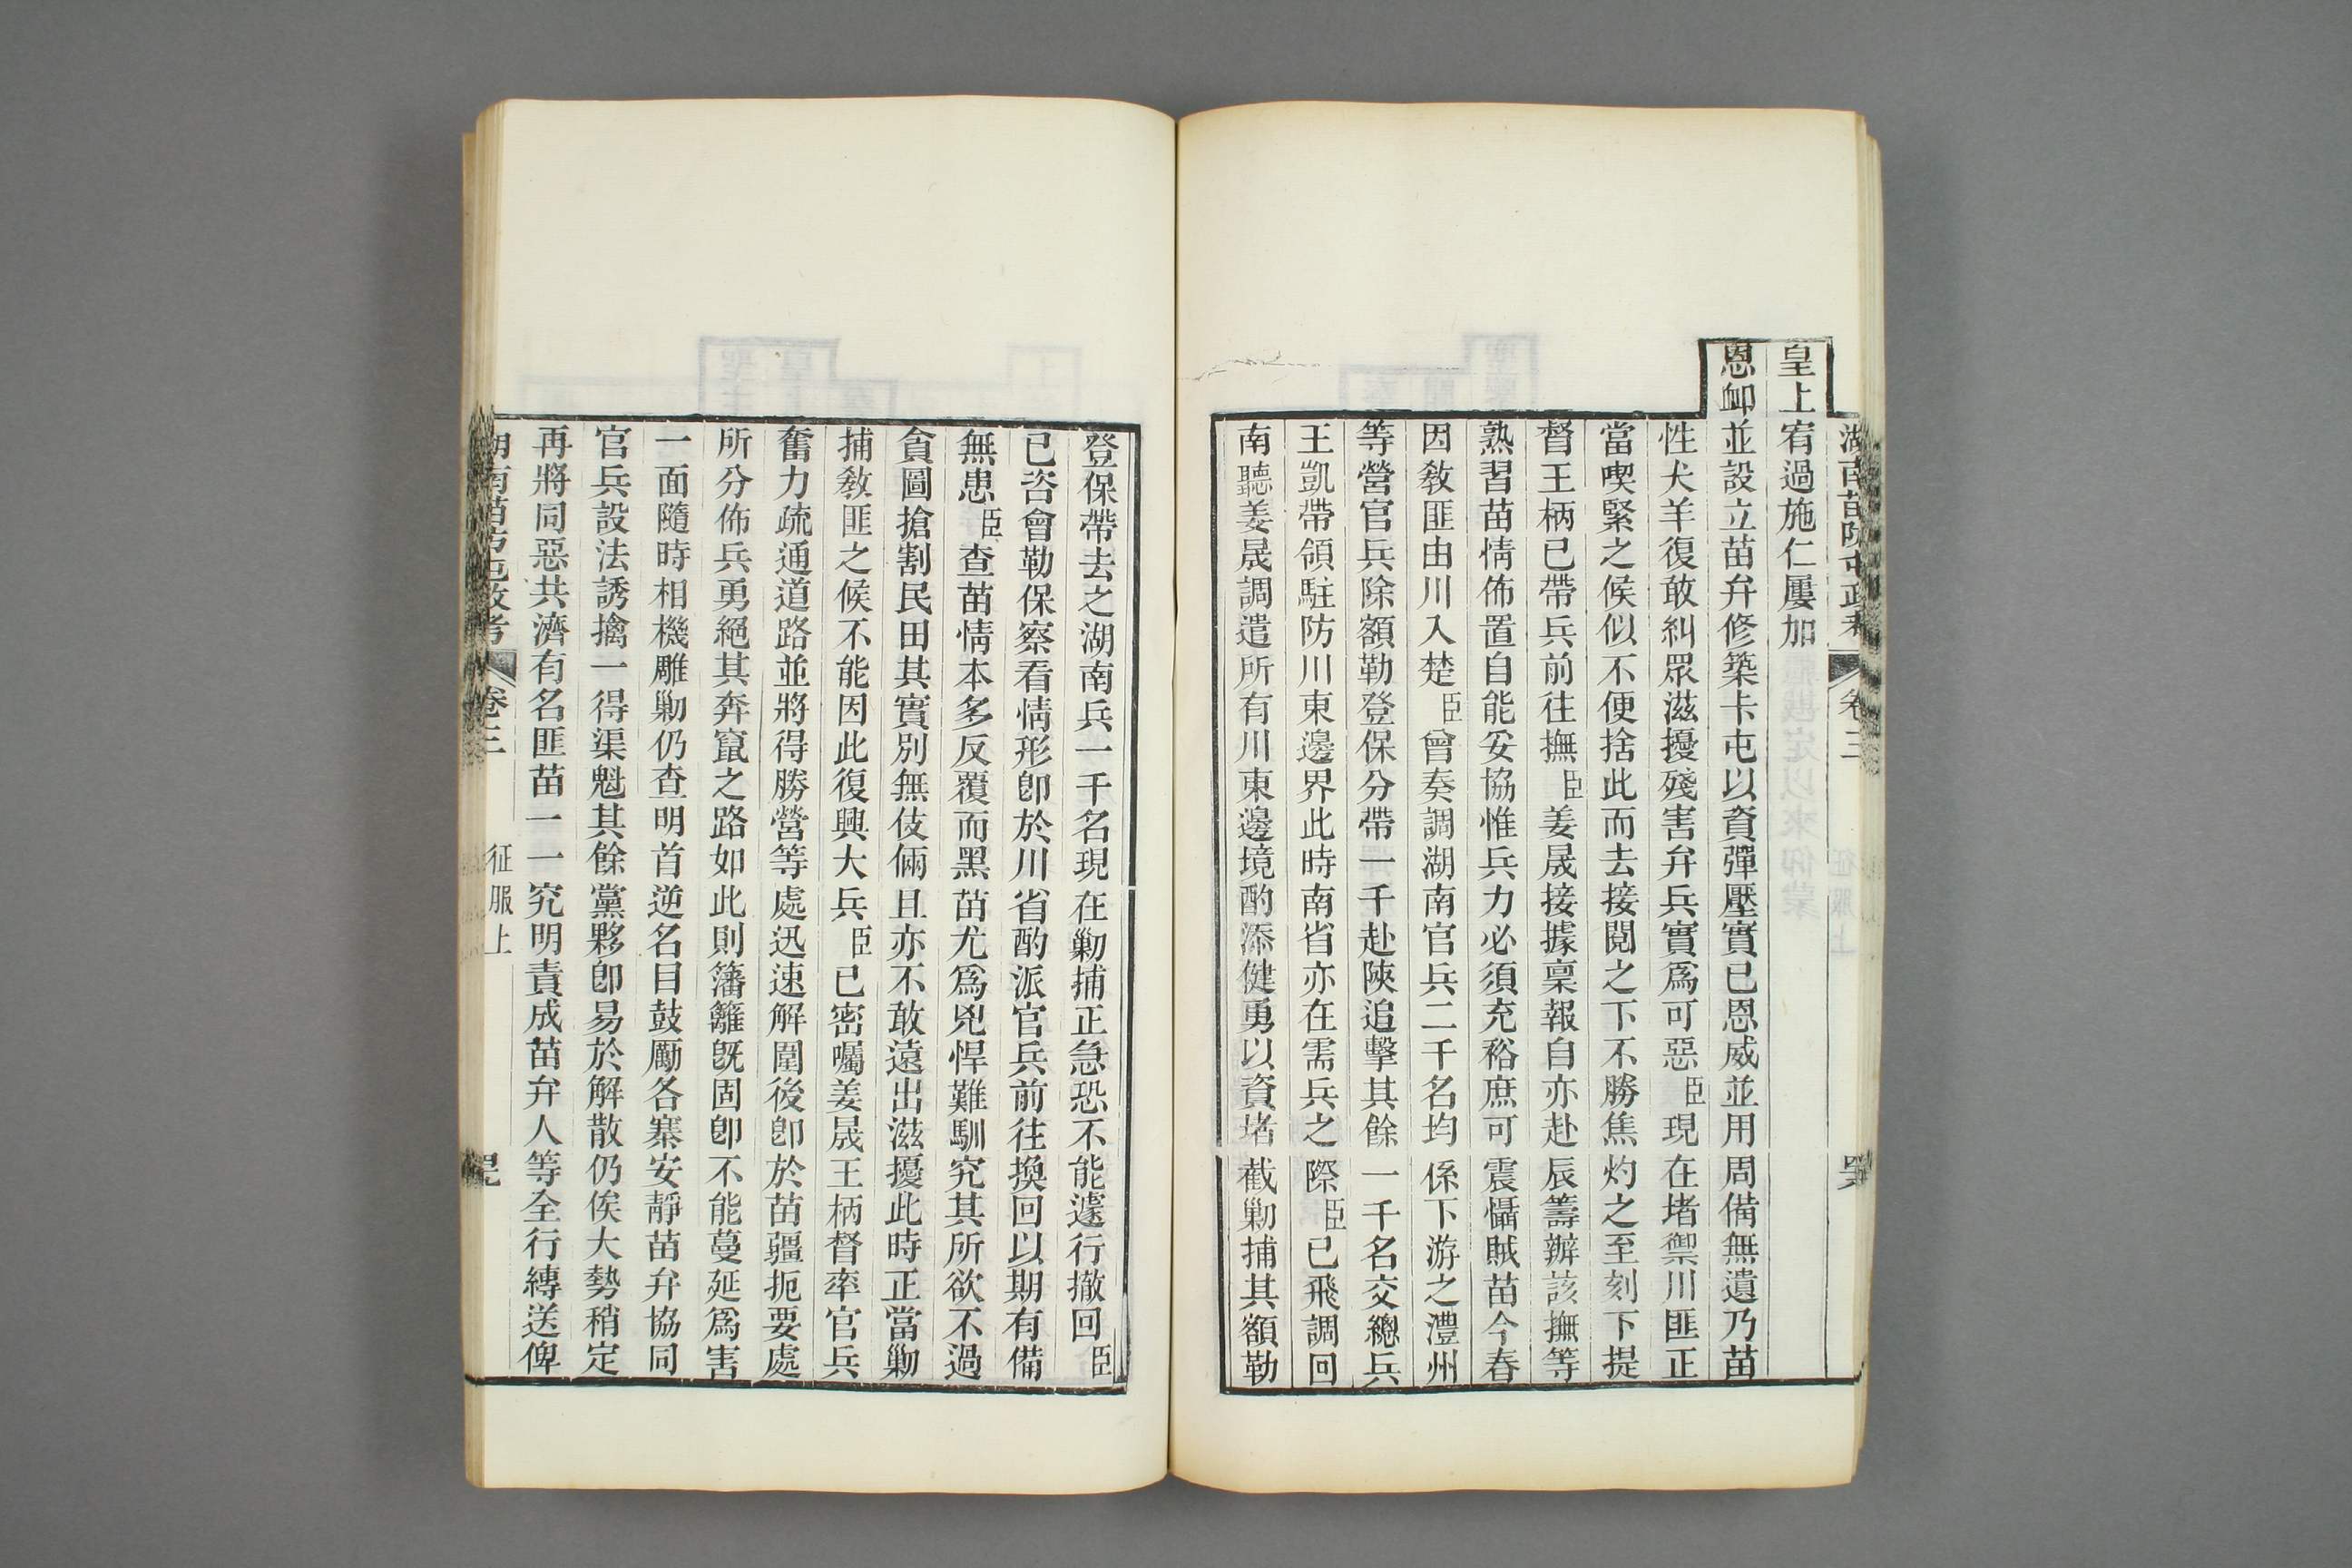 湖南苗防屯政考 卷三
皇上宥過施仁屢加
恩䘏並設立苗弁修築卡屯以資彈壓實已恩威並用周備無遺乃苗
性犬羊復敢糾眾滋擾殘害弁兵實爲可惡臣現在堵禦川匪正
當喫緊之候似不便捨此而去接閱之下不勝焦灼之至刻下提
督王柄已帶兵前往撫臣姜晟接據稟報自亦赴辰籌辦該撫等
熟習苗情佈置自能妥協惟兵力必須充裕庶可震懾賊苗今春
因敎匪由川入楚臣曾奏調湖南官兵二千名均係下游之澧州
等營官兵除額勒登保分帶一千赴陝追擊其餘一千名交總兵
王凱帶領駐防川東邊界此時南省亦在需兵之際臣已飛調回
南聽姜晟調遣所有川東邊境酌添健勇以資堵截勦捕其額勒
登保帶去之湖南兵一千名現在勦捕正急恐不能遽行撤回臣
已咨會勒保察看情形卽於川省酌派官兵前往換回以期有備
無患臣查苗情本多反覆而黑苗尤爲兇悍難馴究其所欲不過
貪圖搶割民田其實別無伎倆且亦不敢遠出滋擾此時正當勦
捕敎匪之候不能因此復興大兵臣已密囑姜晟王柄督率官兵
奮力疏通道路並將得勝營等處迅速解圍後卽於苗疆扼要處
所分佈兵勇絕其奔竄之路如此則籓籬旣固卽不能蔓延爲害
一面隨時相機雕勦仍查明首逆名目鼓勵各寨安靜苗弁協同
官兵設法誘擒一得渠魁其餘黨夥卽易於解散仍俟大勢稍定
再將同惡共濟有名匪苗一一究明責成苗弁人等全行縳送俾
湖南苗防屯政考 卷三 征服上